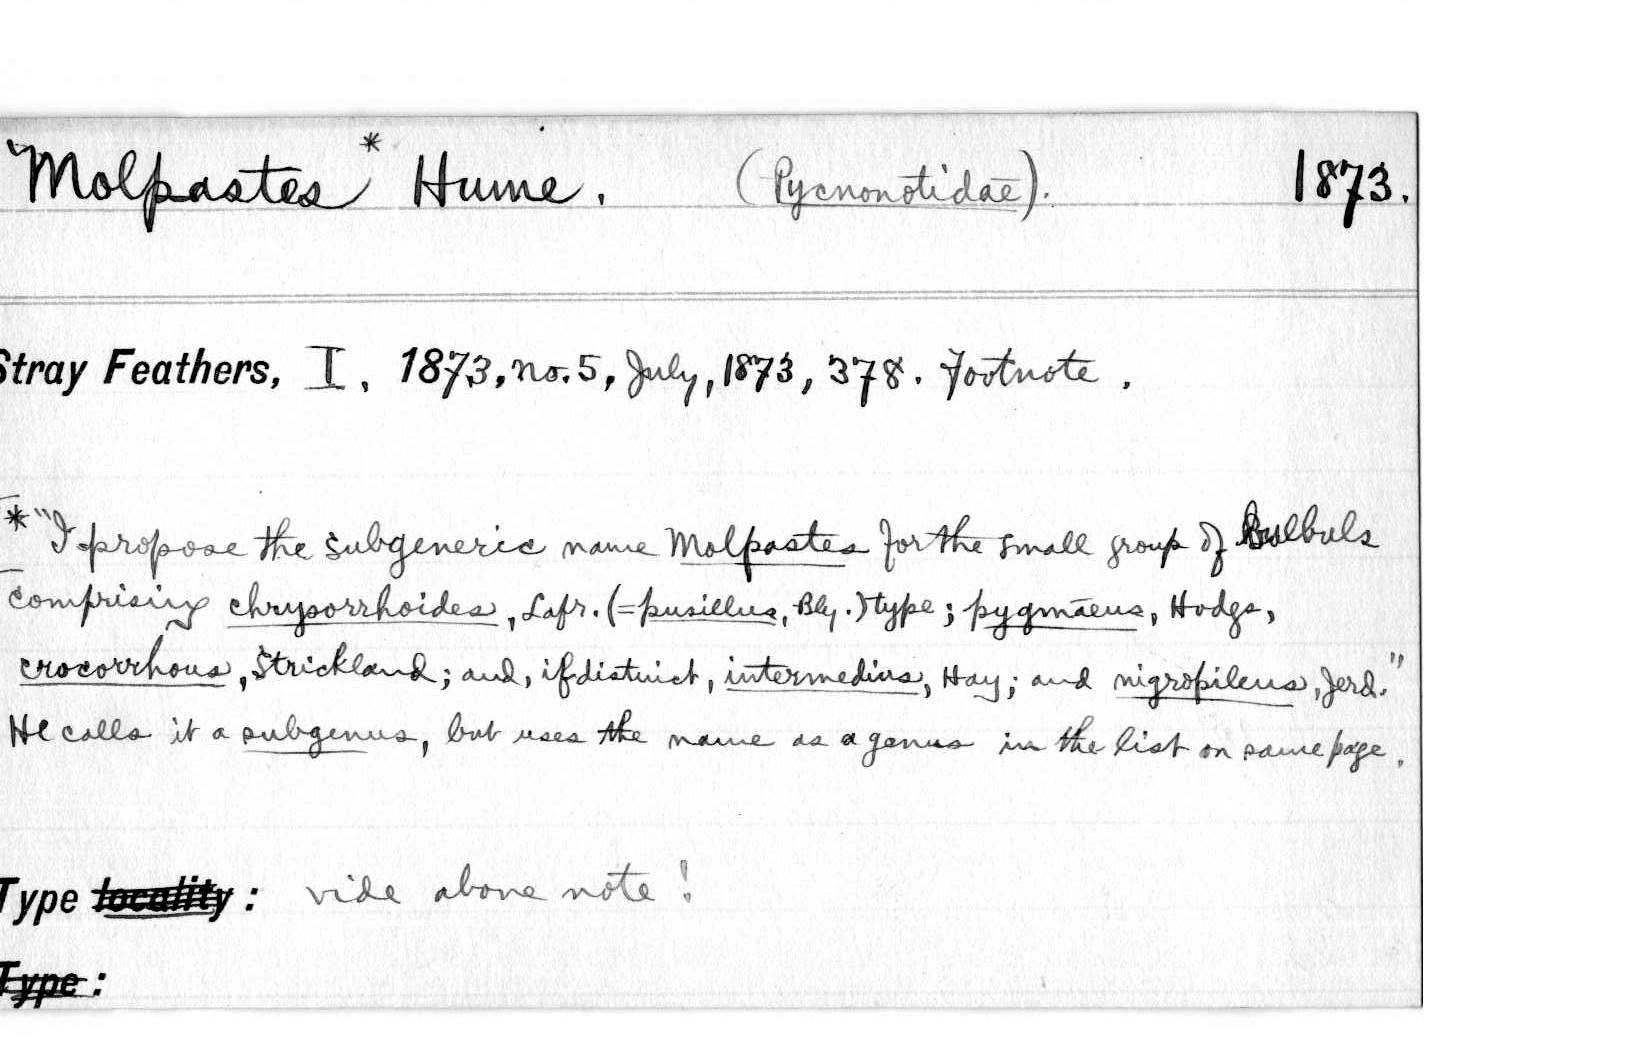 "Molpastes* Hume. (Pycnonotidae). 1873.
Stray Feathers, I, 1873, no. 5, July, 1873, 378. Footnote.
*"I propose the subgeneric name Molpastes for the small group of Bulbuls
comprising chrysorrhoides, Lafr. (=pusillus, Bly.) type; pygmaeus, Hodgs,
crocorrhous, Strickland; and, if distinct, intermedius, Hay; and nigropileus, Jerd."
He calls it a subgenus, but uses the name as a genus in the list on same page.
Type locality: vide above note!
Type: